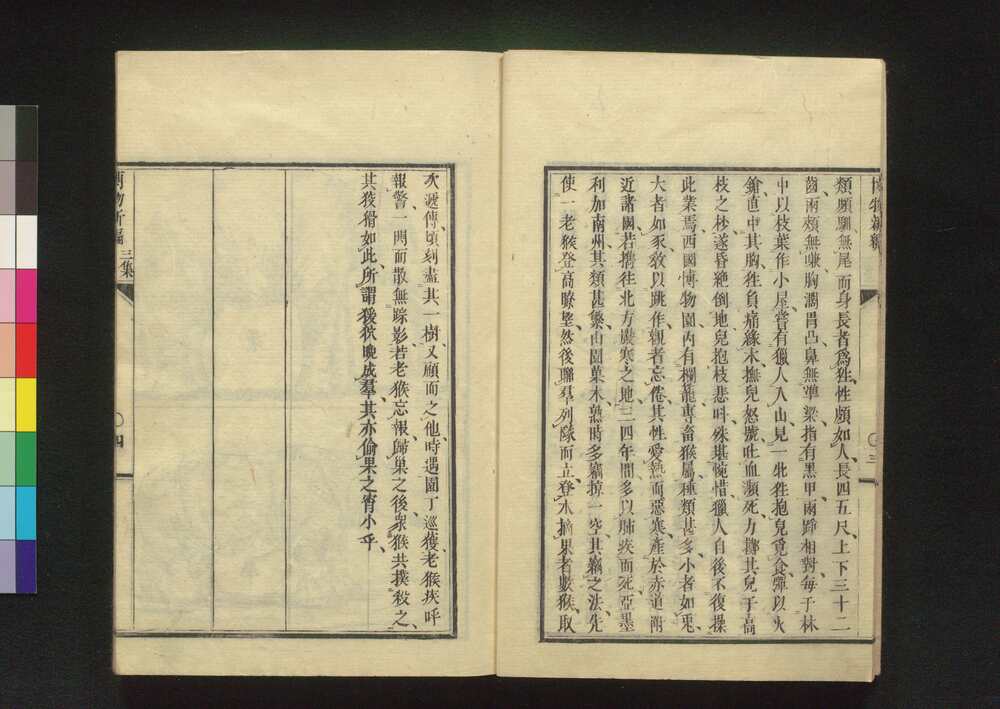 博物新編
〇三
類願馴無尾而身長者為狌性頗如人長四五尺上下三十二
齒兩頰無嗛胸濶胃凸鼻無準梁指有黑甲兩踭相對每于林
中以枝葉作小屋嘗有獵人入山見一牝狌抱兒覓食彈以火
鎗直中其胸狌負痛緣木撫兒怒號吐血瀕死力擲其兒于高
枝之杪遂昏絶倒地兒抱枝悲呌殊堪惋惜獵人自後不復操
此業焉西國博物園內有欄籠專畜猴屬種類甚多小者如兎
大者如豕敎以跳作觀者忘倦其性愛熱而惡寒產於赤道附
近諸國若㩗往北方嚴寒之地三四年間多以肺疾而死亞墨
利加南州其類甚繁山園菓木熟時多竊掠一空其竊之法先
使一老猴登高瞭望然後聯羣列隊而立登木摘果者數猴取
次遞傳頃刻盡其一樹又顧而之他時遇園丁巡獲老猴疾呼
報警一閧而散無踪影若老猴忘報歸巢之後衆猴共撲殺之
其狡猾如此所謂猨狖晚成羣其亦偷果之宵小乎
博物新編
三集
〇四